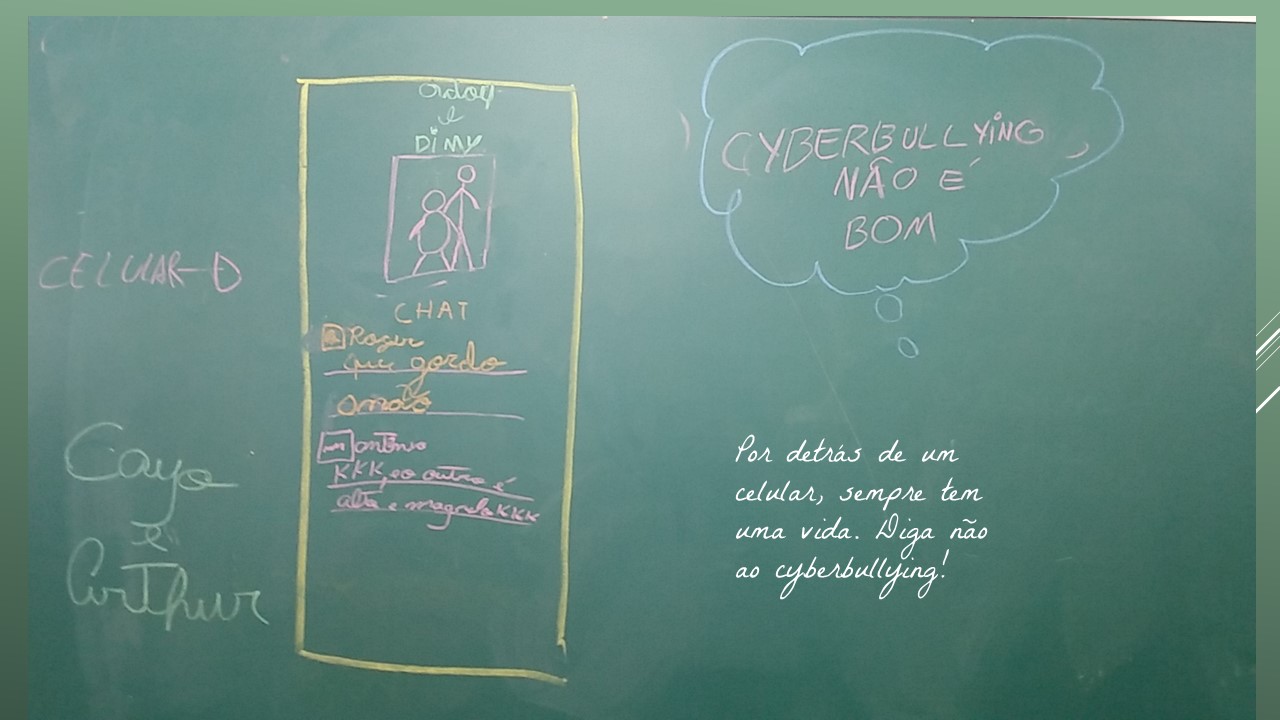 e
DiMY
CHAT
Roger
que gordo
CELULAR
antônio
KKK, eo outro é
alto e magrelo KKK
Cayo
e
Arthur
CYBERBULLYING
NÃO É
BOM
Por detrás de um
celular, sempre tem
uma vida. Diga não
ao cyberbullying!